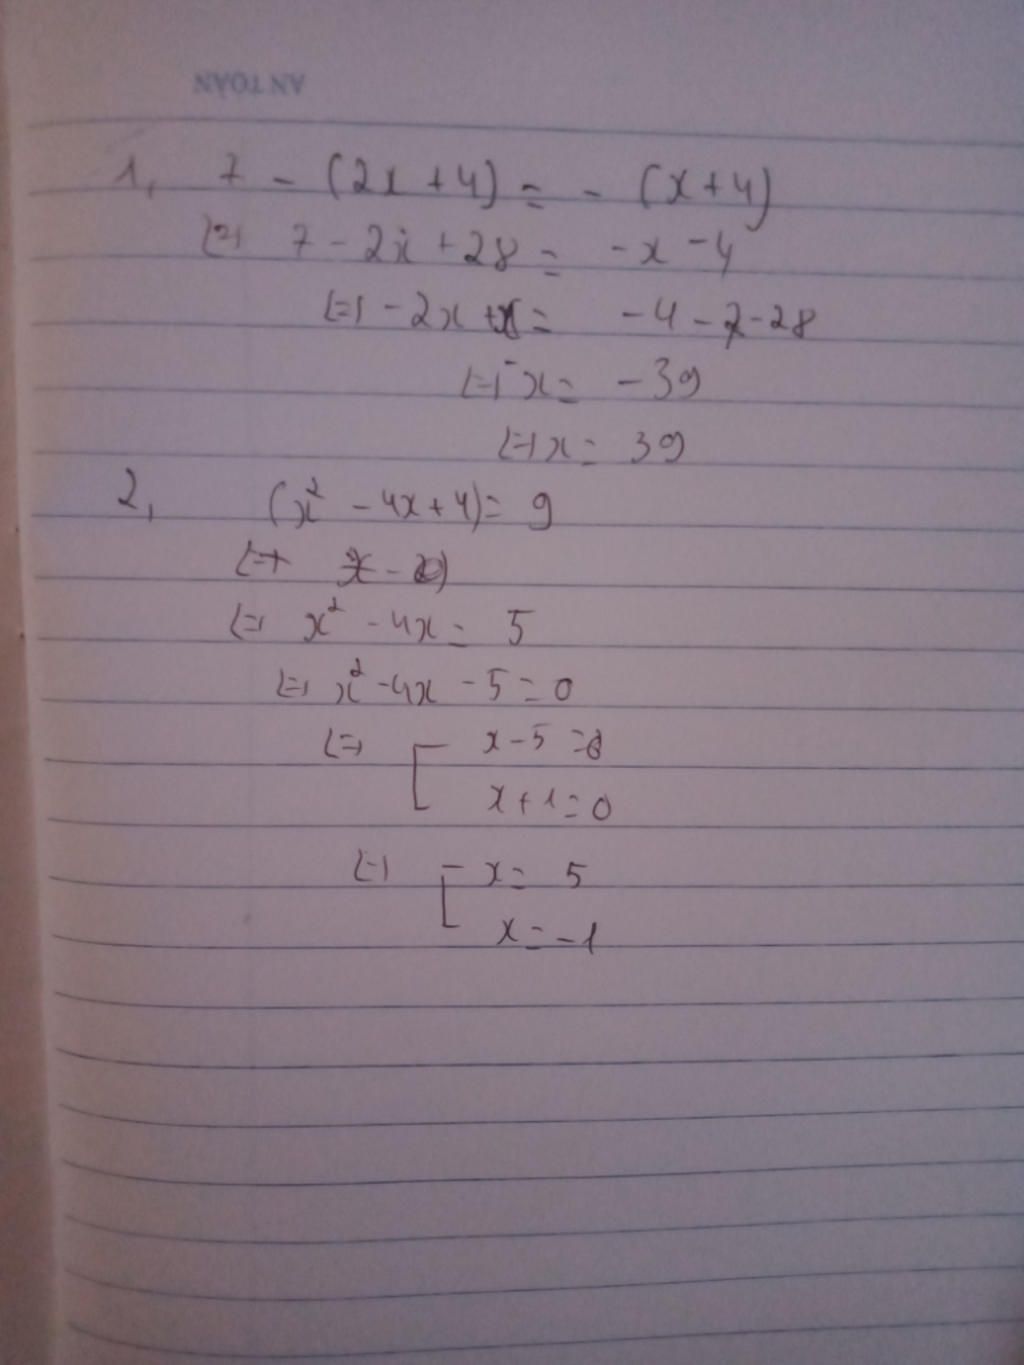 AN TOAN
1, 7 - (2x + 4) = - (x + 4)
<=> 7 - 2x + 28 = -x - 4
<=> - 2x + x = -4 - 7 - 28
<=> -x = -39
<=> x = 39
2, (x² - 4x + 4) = 9
<=> x² - 4x = 5
<=> x² - 4x - 5 = 0
<=> [ x - 5 = 0
x + 1 = 0
<=> [ x = 5
x = -1